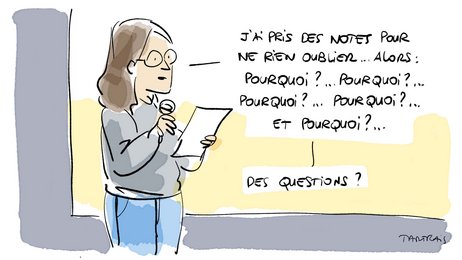 J'AI PRIS DES NOTES POUR
NE RIEN OUBLIER... ALORS:
POURQUOI?... POURQUOI?...
POURQUOI?... POURQUOI?...
ET POURQUOI?...
DES QUESTIONS?